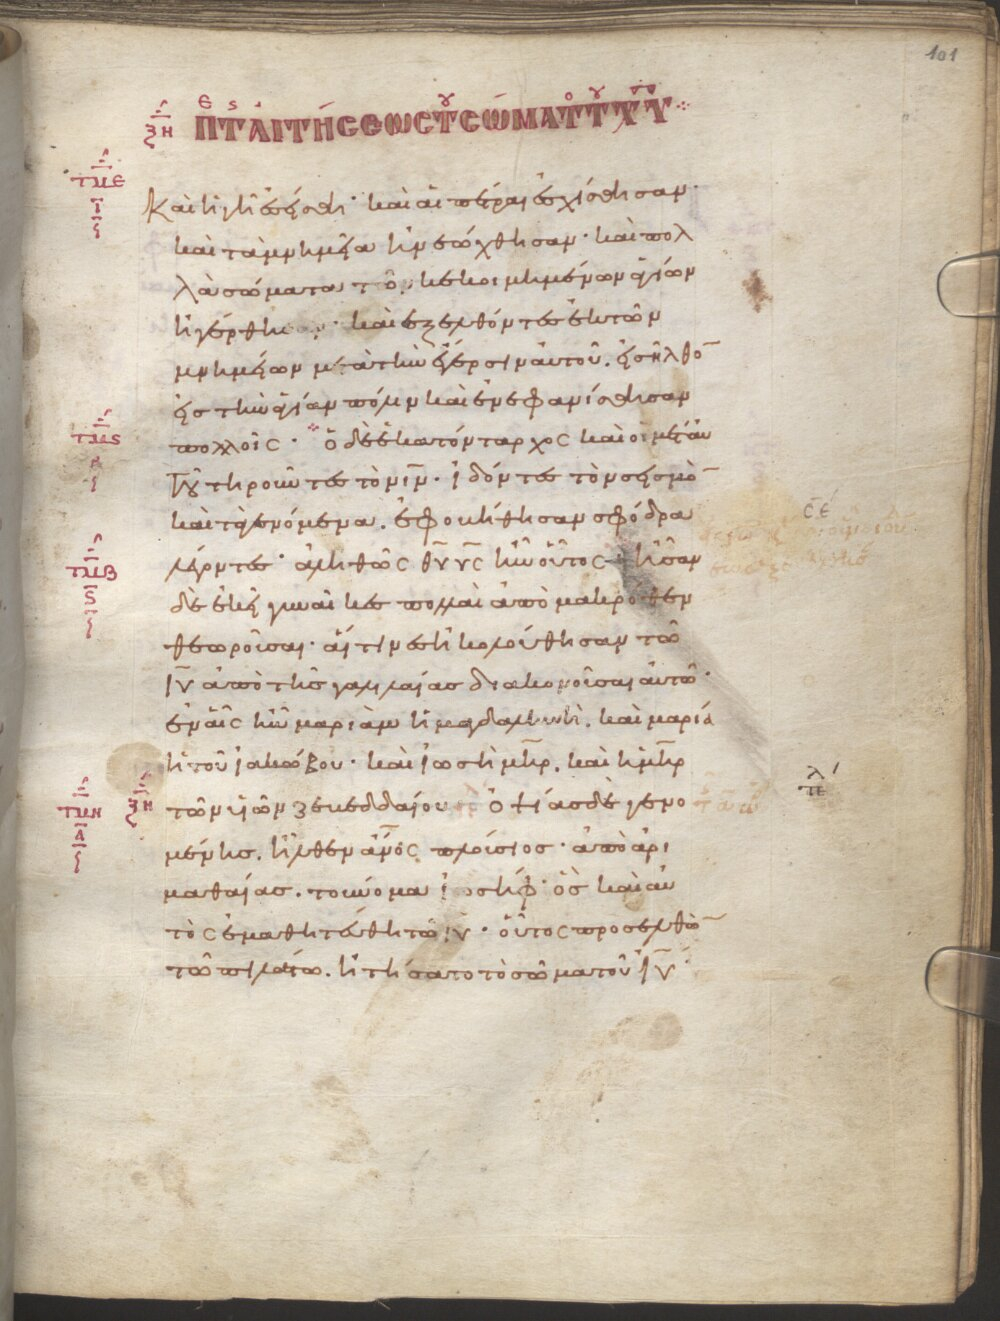 101
ξη Π Τ ΑΙΤΗϹΕΩϹ ΤΟΥ ϹΩΜΑΤ Τ ΧΥ
τμε
ι
Καὶ ἡ γῆ ἐσείσθη · καὶ αἱ πέτραι ἐσχίσθησαν ·
καὶ τὰ μνημεῖα ἠνεώχθησαν · καὶ πολ
λὰ σώματα τῶν κεκοιμημένων ἁγίων
ἠγέρθησαν · καὶ ἐξελθόντες ἐκ τῶν
μνημείων μετὰ τὴν ἔγερσιν αὐτοῦ . εἰσῆλθο̅
εἰς τὴν ἁγίαν πόλιν καὶ ἐνεφανίσθησαν
τμϛ
πολλοῖς · ὁ δὲ ἑκατόνταρχος καὶ οἱ μετ αὐ
τοῦ τηροῦντες τὸν ι̅ν̅ · ἰδόντες τὸν σεισμὸ̅
καὶ τὰ γενόμενα . ἐφοβήθησαν σφόδρα
λέγοντες · ἀληθῶς θ̅υ̅ υ̅ς̅ ἦν οὗτος · ἦσαν
τμβ
ϛ
δὲ ἐκεῖ γυναῖκες πολλαὶ ἀπὸ μακρόθεν
θεωροῦσαι · αἵτινες ἠκολούθησαν τῶ
ι̅υ̅ ἀπὸ τῆς γαλιλαίας διακονοῦσαι αὐτῶ ·
ἐν αἷς ἦν μαριὰμ ἡ μαγδαληνὴ . καὶ μαρία
ἡ τοῦ ἰακώβου · καὶ ἰωσὴ μ̅η̅ρ̅ . καὶ ἡ μ̅η̅ρ̅
τμη
α
ξη
τῶν υἱῶν ζεβεδδαίου ὀψίας δὲ γενο
μένης . ἦλθεν α̅ν̅ο̅ς̅ πλούσιος · ἀπὸ ἀρι
μαθαίας . τοὔνομα ἰωσὴφ · ὃς καὶ αὐ
τὸς ἐμαθητεύθη τῶ ι̅υ̅ · οὗτος προσελθὼ̅
τῶ πιλάτω . ἠτήσατο τὸ σῶμα τοῦ ι̅υ̅ ·